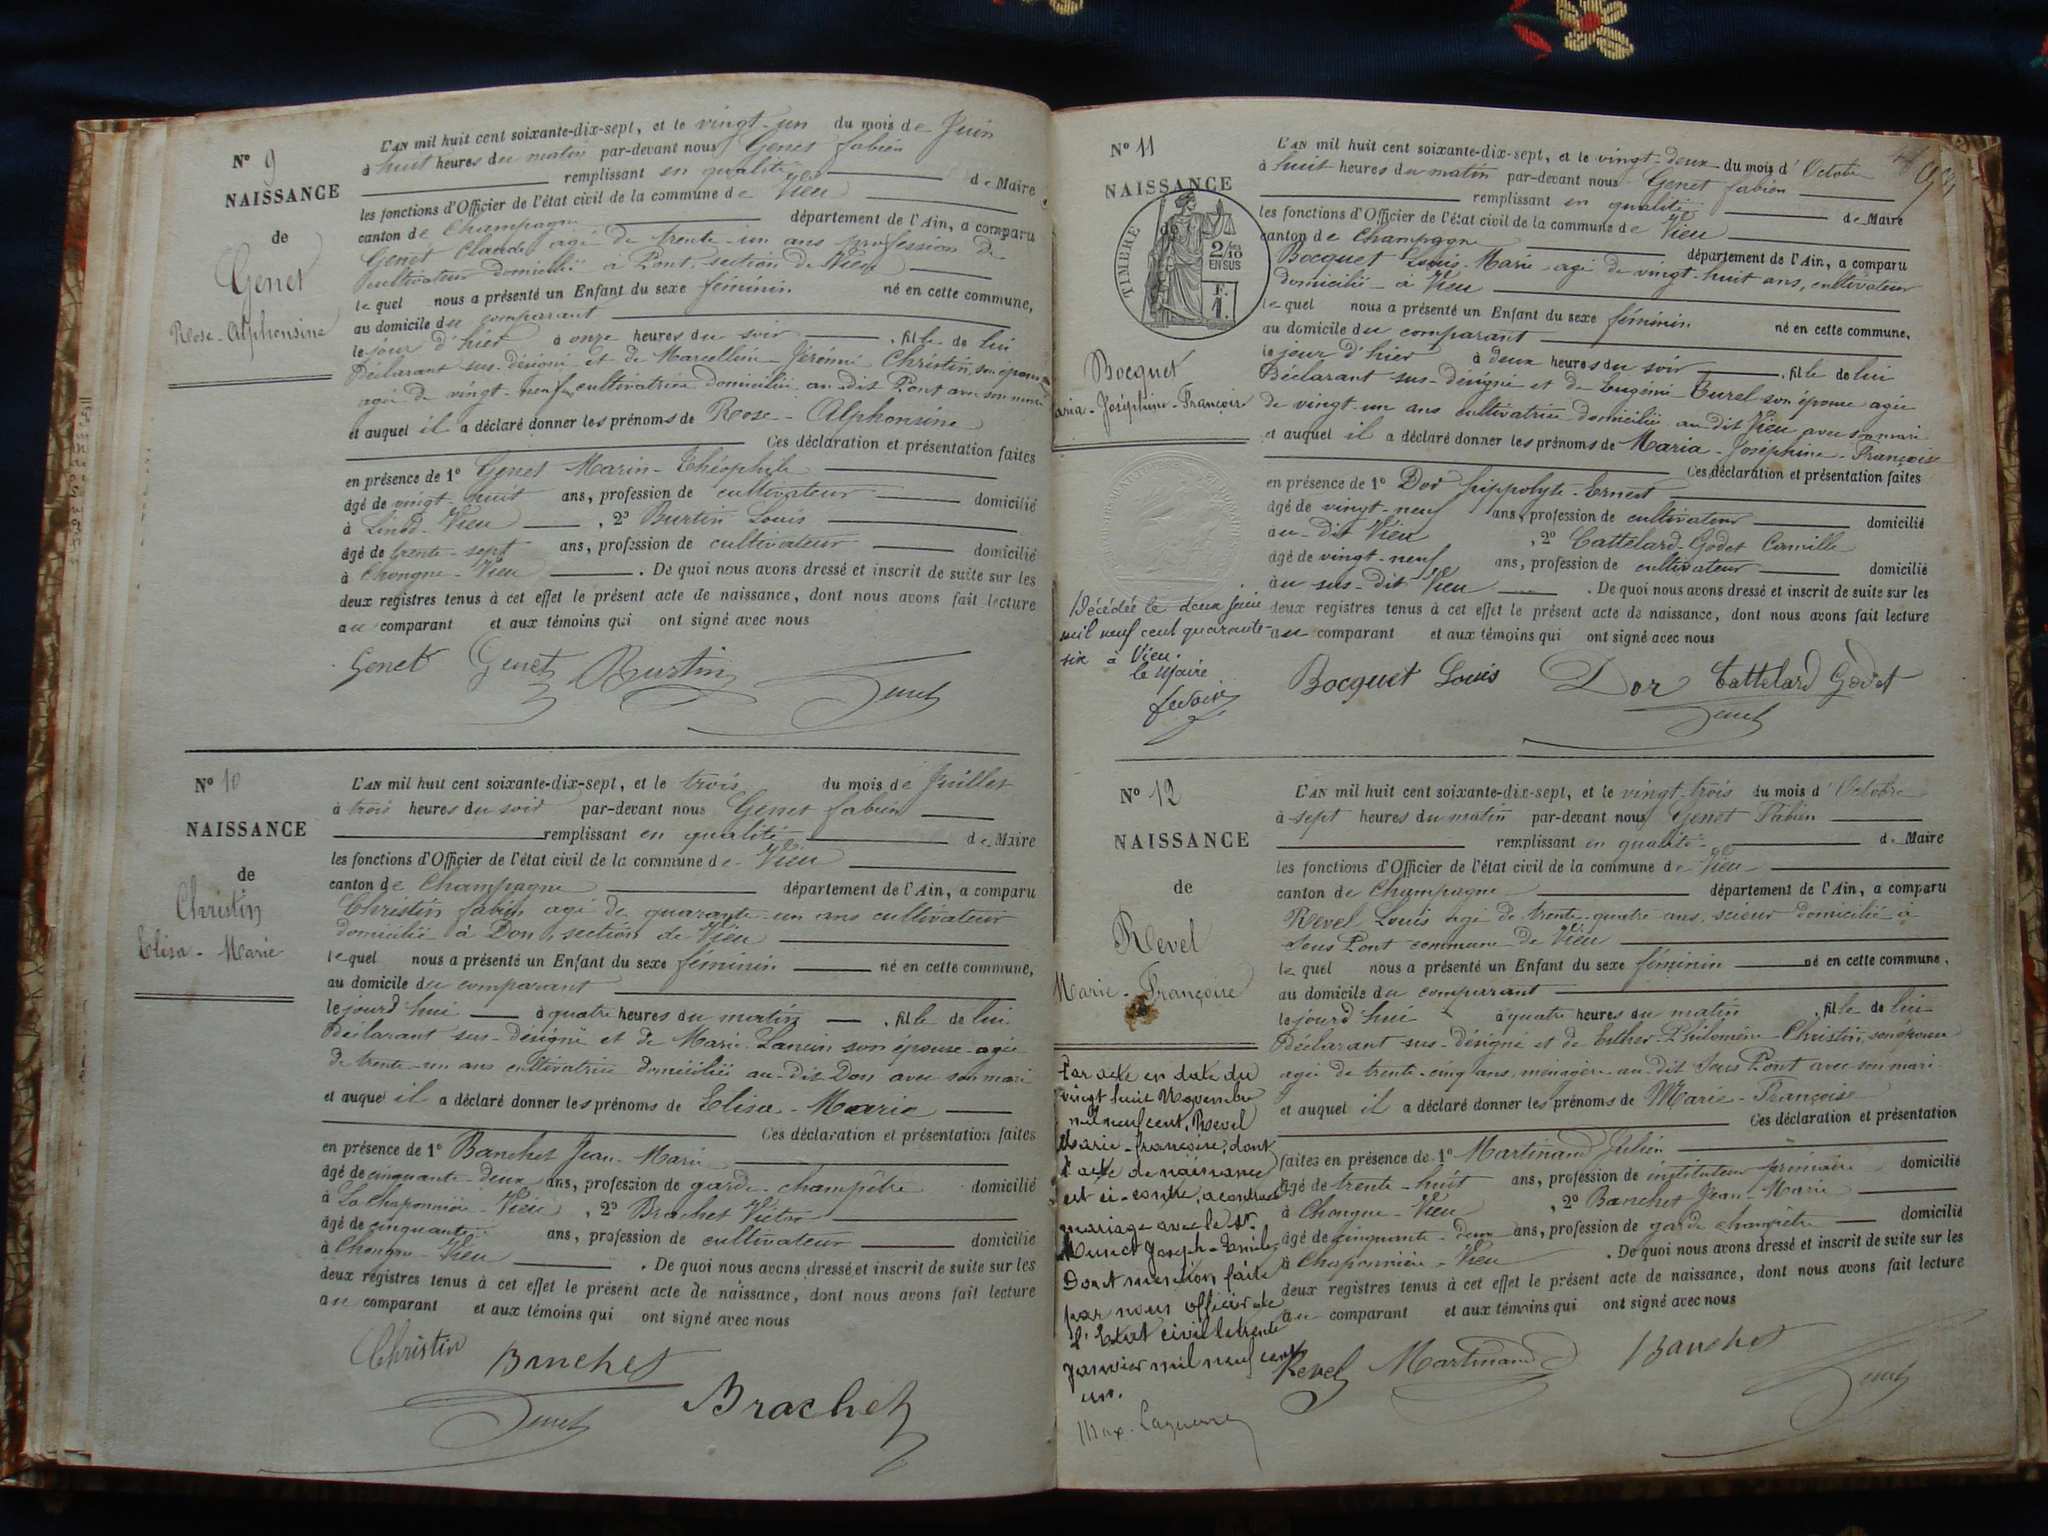 Nº 9
NAISSANCE
de
Genet
Rose-Alphonsine
L'AN mil huit cent soixante-dix-sept, et le vingt-un du mois de Juin
à huit heures du matin par-devant nous Genet fabien
remplissant en qualité de Maire
les fonctions d'Officier de l'état civil de la commune de Vieu
canton de Champagne département de l'Ain, a comparu
Genet Claude agé de trente-un ans profession de
cultivateur domicilié à Pont, section de Vieu
le quel nous a présenté un Enfant du sexe féminin né en cette commune,
au domicile du comparant
le jour d'hier à onze heures du soir, fille de lui
Déclarant sus-désigné et de Marcelline-Jérémie Christin, son épouse
agée de vingt-neuf cultivatrice domiciliée au dit Pont avec son mari
et auquel il a déclaré donner les prénoms de Rose-Alphonsine
Ces déclaration et présentation faites
en présence de 1º Genet Marin-Théophile
âgé de vingt-huit ans, profession de cultivateur domicilié
à Linod-Vieu, 2º Burtin Louis
âgé de trente-sept ans, profession de cultivateur domicilié
à Chongne-Vieu. De quoi nous avons dressé et inscrit de suite sur les
deux registres tenus à cet effet le présent acte de naissance, dont nous avons fait lecture
au comparant et aux témoins qui ont signé avec nous
Genet Genet Burtin
Genet
Nº 10
NAISSANCE
de
Christin
Elisa-Marie
L'AN mil huit cent soixante-dix-sept, et le trois du mois de Juillet
à trois heures du soir par-devant nous Genet fabien
remplissant en qualité de Maire
les fonctions d'Officier de l'état civil de la commune de Vieu
canton de Champagne département de l'Ain, a comparu
Christin fabien agé de quarante-un ans cultivateur
domicilié à Don, section de Vieu
le quel nous a présenté un Enfant du sexe féminin né en cette commune,
au domicile du comparant
le jourd'hui à quatre heures du matin, fille de lui
Déclarant sus-désigné et de Marie Lancin son épouse agée
de trente-un ans cultivatrice domiciliée au-dit Don avec son mari
et auquel il a déclaré donner les prénoms de Elisa-Marie
Ces déclaration et présentation faites
en présence de 1º Banchet Jean-Marie
âgé de cinquante-deux ans, profession de garde-champêtre domicilié
à La Chaponnière-Vieu, 2º Brachet Victor
âgé de cinquante ans, profession de cultivateur domicilié
à Chongne-Vieu. De quoi nous avons dressé et inscrit de suite sur les
deux registres tenus à cet effet le présent acte de naissance, dont nous avons fait lecture
au comparant et aux témoins qui ont signé avec nous
Christin Banchet
Genet Brachet
Nº 11
NAISSANCE
de
TIMBRE
2/10
EN SUS
F.
1.
Bocquet
Maria-Joséphine-Françoise
L'AN mil huit cent soixante-dix-sept, et le vingt-deux du mois d'Octobre
à huit heures du matin par-devant nous Genet fabien
remplissant en qualité de Maire
les fonctions d'Officier de l'état civil de la commune de Vieu
canton de Champagne département de l'Ain, a comparu
Bocquet Louis-Marie agé de vingt-huit ans, cultivateur
domicilié à Vieu
le quel nous a présenté un Enfant du sexe féminin né en cette commune,
au domicile du comparant
le jour d'hier à deux heures du soir, fille de lui
Déclarant sus-désigné et de Eugénie Burel son épouse agée
de vingt-un ans cultivatrice domiciliée au-dit Vieu avec son mari
et auquel il a déclaré donner les prénoms de Maria-Joséphine-Françoise
Ces déclaration et présentation faites
en présence de 1º Dor hippolyte-Ernest
âgé de vingt-neuf ans, profession de cultivateur domicilié
au-dit Vieu, 2º Cattelard-Godet Camille
âgé de vingt-neuf ans, profession de cultivateur domicilié
au sus-dit Vieu. De quoi nous avons dressé et inscrit de suite sur les
deux registres tenus à cet effet le présent acte de naissance, dont nous avons fait lecture
au comparant et aux témoins qui ont signé avec nous
Bocquet Louis Dor Cattelard Godet
Genet
Décédée le deux
mil neuf cent quarante
six à Vieu.
le Maire
Nº 12
NAISSANCE
de
Revel
Marie-Françoise
L'AN mil huit cent soixante-dix-sept, et le vingt-trois du mois d'Octobre
à sept heures du matin par-devant nous Genet Fabien
remplissant en qualité de Maire
les fonctions d'Officier de l'état civil de la commune de Vieu
canton de Champagne département de l'Ain, a comparu
Revel Louis agé de trente-quatre ans, scieur domicilié à
Sous Pont commune de Vieu
le quel nous a présenté un Enfant du sexe féminin né en cette commune,
au domicile du comparant
le jourd'hui à quatre heures du matin, fille de lui
Déclarant sus-désigné et de Esther-Philomène Christin, son épouse
agée de trente-cinq ans, ménagère au-dit Sous Pont avec son mari
et auquel il a déclaré donner les prénoms de Marie-Françoise
Ces déclaration et présentation
faites en présence de 1º Martinand Julien
âgé de trente-huit ans, profession de instituteur primaire domicilié
à Chongne-Vieu, 2º Banchet Jean-Marie
âgé de cinquante-deux ans, profession de garde champêtre domicilié
à Chaponnière-Vieu. De quoi nous avons dressé et inscrit de suite sur les
deux registres tenus à cet effet le présent acte de naissance, dont nous avons fait lecture
au comparant et aux témoins qui ont signé avec nous
Revel Martinand Banchet
Genet
Par acte en date du
vingt huit Novembre
mil neuf cent, Revel
Marie-Françoise, dont
l'acte de naissance
est ci-contre, a contracté
mariage avec le Sr.
Joseph-Emile
Dont mention faite
par nous officier de
l'Etat civil le trente
Janvier mil neuf cent
un.